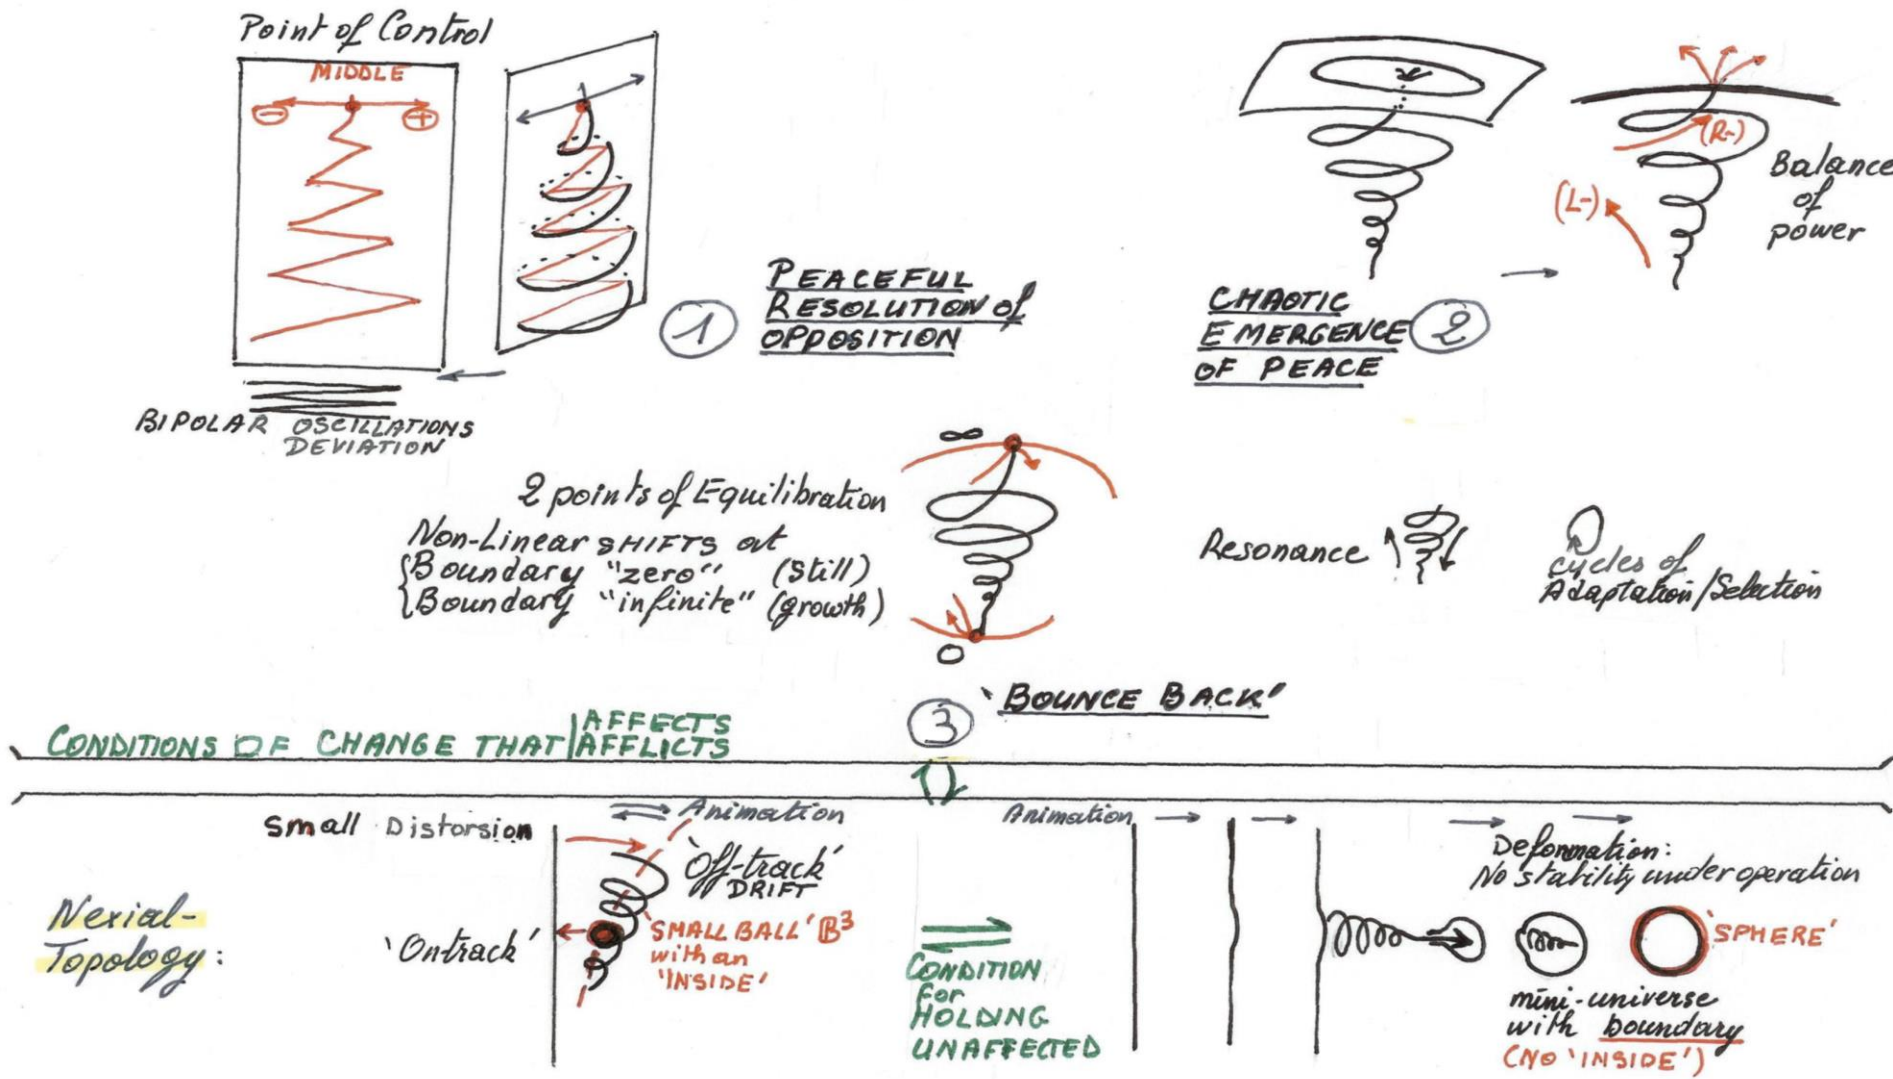 Point of Control
MIDDLE
- +
BIPOLAR OSCILLATIONS
DEVIATION
1
PEACEFUL
RESOLUTION of
OPPOSITION
CHAOTIC
EMERGENCE
OF PEACE
2
(R-)
(L-)
Balance
of
power
∞
2 points of Equilibration
Non-Linear SHIFTS at
{Boundary "zero" (still)
{Boundary "infinite" (growth)
0
Resonance
cycles of
Adaptation/Selection
3
'BOUNCE BACK'
CONDITIONS OF CHANGE THAT
AFFECTS
AFFLICTS
Small Distorsion
Animation
'Off-track'
DRIFT
'SMALL BALL' B³
with an
'INSIDE'
'Ontrack'
Nexial-
Topology:
CONDITION
for
HOLDING
UNAFFECTED
Animation
Deformation:
No stability under operation
'SPHERE'
mini-universe
with boundary
(NO 'INSIDE')